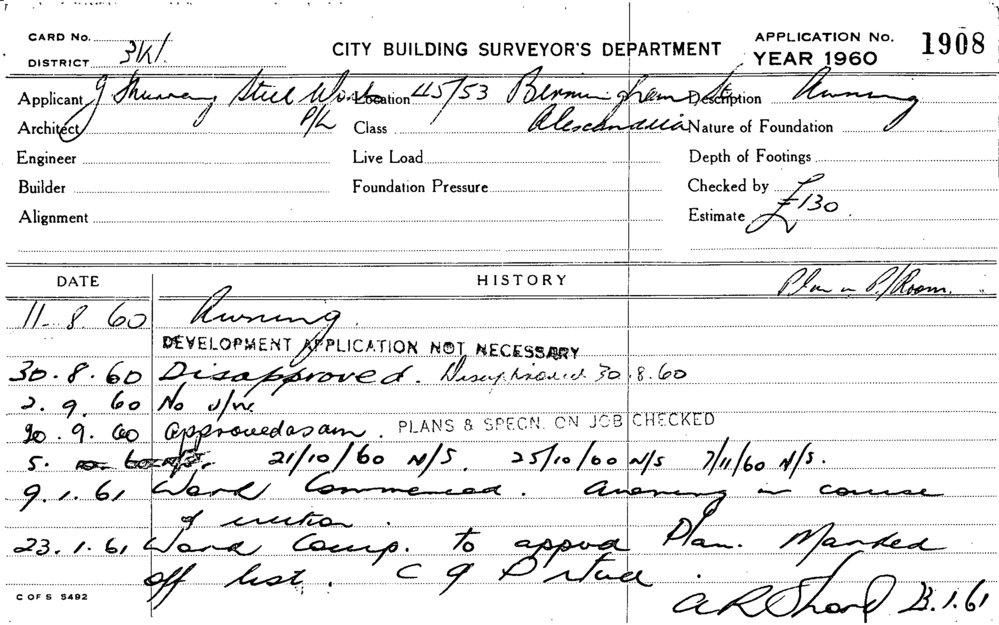 CARD No.
DISTRICT 3K1
CITY BUILDING SURVEYOR'S DEPARTMENT
APPLICATION No. 1908
YEAR 1960
Applicant J Murray Steel Works P/L Location 45/53 Birmingham St Description Awning
Architect Class Alexandria Nature of Foundation
Engineer Live Load Depth of Footings
Builder Foundation Pressure Checked by
Alignment Estimate £130
DATE HISTORY Plan in P/Room.
11-8 60 Awning.
DEVELOPMENT APPLICATION NOT NECESSARY
30.8.60 Disapproved. 30.8.60
2.9.60 No
20.9.60 approved as am. PLANS & SPECN. ON JOB CHECKED
5. 21/10/60 N/S. 25/10/60 N/S 7/11/60 N/S.
9.1.61 Work Commenced. Awning in course
of erection.
23.1.61 Work Comp. to appvd Plan. Marked
off list.
C OF S 5492
23.1.61